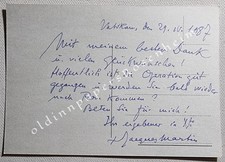 Vatikan, den 29. IV. 1987
Mit meinem besten Dank
u. vielen Glückwünschen!
Hoffentlich ist die Operation gut
gegangen u. werden Sie bald wieder
nach Rom kommen?
Beten Sie für mich!
Ihr ergebener in
+ Jacques Martin